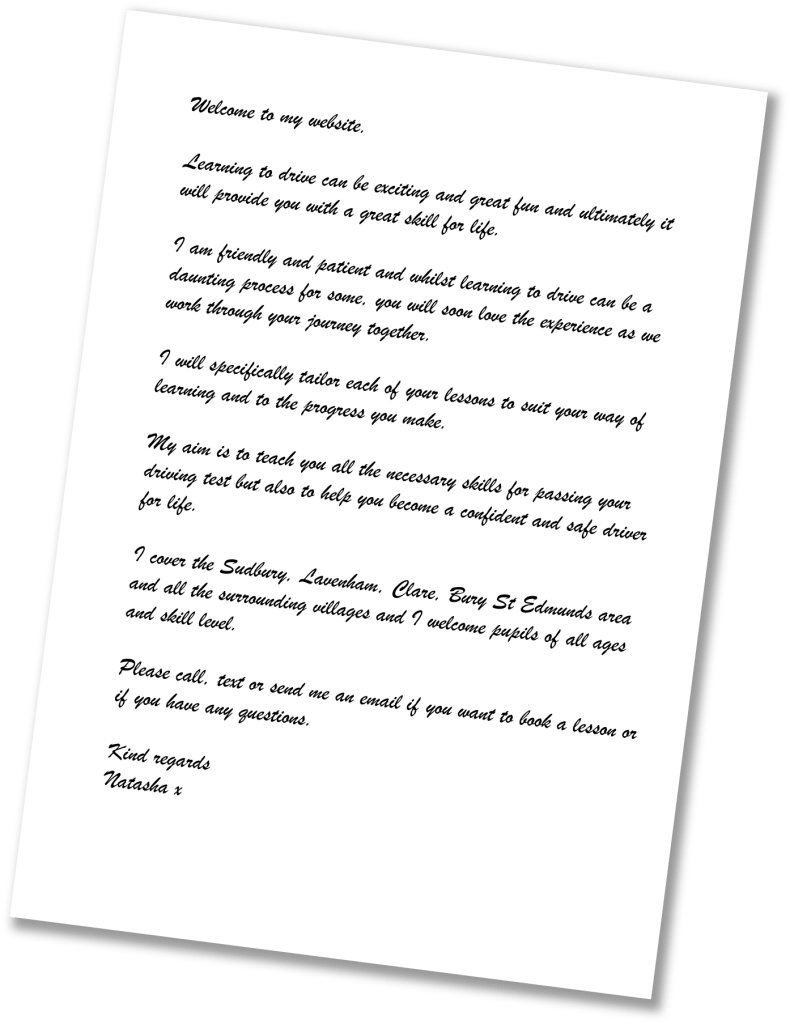 Welcome to my website.
Learning to drive can be exciting and great fun and ultimately it
will provide you with a great skill for life.
I am friendly and patient and whilst learning to drive can be a
daunting process for some, you will soon love the experience as we
work through your journey together.
I will specifically tailor each of your lessons to suit your way of
learning and to the progress you make.
My aim is to teach you all the necessary skills for passing your
driving test but also to help you become a confident and safe driver
for life.
I cover the Sudbury, Lavenham, Clare, Bury St Edmunds area
and all the surrounding villages and I welcome pupils of all ages
and skill level.
Please call, text or send me an email if you want to book a lesson or
if you have any questions.
Kind regards
Natasha x